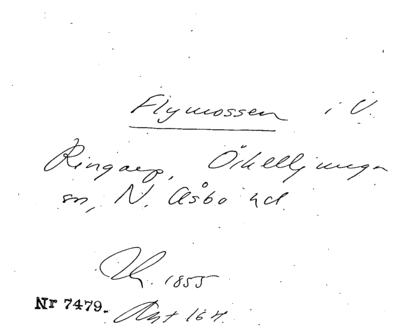 Flymossen i V.
Ringarp, Örkelljunga
sn, N. Åsbo hd
1855
Nr 7479.